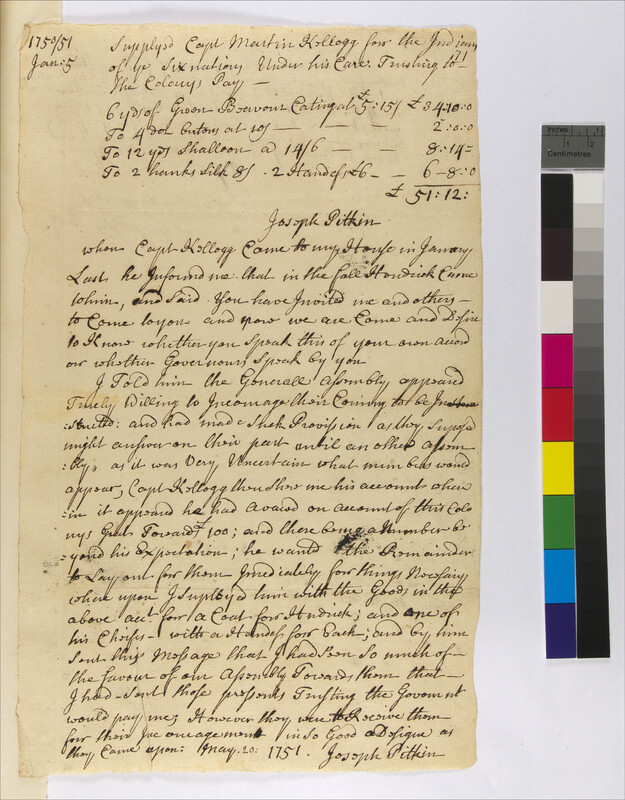 1750/51
Jan: 5
Supplyd Capt Martin Kellogg for the Indians
71
of ye Six nations Under his Care. Trusting to
the Colonys Pay —
6 yds of Green Beavour Coating at £5:15s £34-10:0
To 4 doz butons at 10s — — — 2:0:0
To 12 yds Shalloon a 14/6 — — 8:14=
To 2 hanks Silk 8s. 2 Handfs £6 — — 6-8:0
£ 51:12:
Joseph Pitkin
when Capt Kellogg Came to my House in January
Last he Informd me that in the fall Hendrick Came
to him, and Said You have Invited me and others —
to Come to you and now we are Come and Desire
to Know whether you Speak this of your own accord
or whether Governours Speak by you
I Told him the Generall Assembly appeared
Freely Willing to Incourage their Coming to be In
:structed: and had made Such Provission as they Suposd
might answer on their part until an other assem
:bly, as it was Very Uncertain what number would
appear, Capt Kellogg then Shew me his account where
:in it appeard he had on account of this Colo
nys Grat Toward £100; and there being a Number be
yond his Expectation; he wanted the Remainder
to Lay out for them Imediately for things Nessary
where upon I Suplyd him with the Goods in the
above acct. for a Coat for Hndrick; and one of
his Cheifs - with a Handf for Each; and by him
Sent this Message that I had Seen So much of —
the favour of our Assembly Towards them that —
I had - Sent those presents Trusting the Goverment
would pay me; However they were to Receive them
for their Incouragement in So Good a Design as
they Came upon: May. 20: 1751. Joseph Pitkin
Inches 1 2
Centimetres